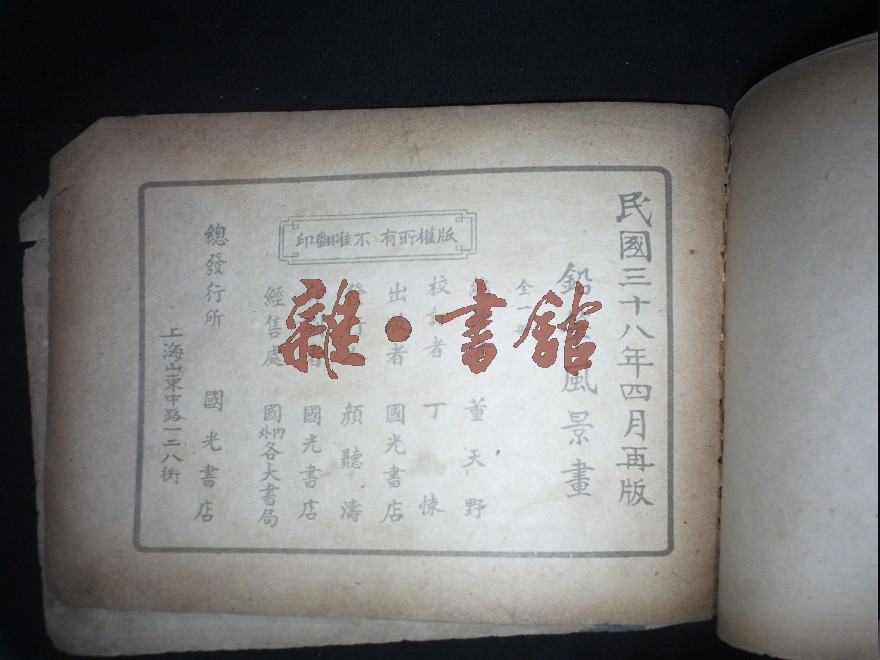 民國三十八年四月再版
鉛 風景畫
全一
董天野
校訂者 丁悚
出 者 國光書店
顏聽濤
國光書店
經售處 國內外各大書局
版權所有 不准翻印
總發行所 國光書店
上海山東中路一二八街
雜·書館